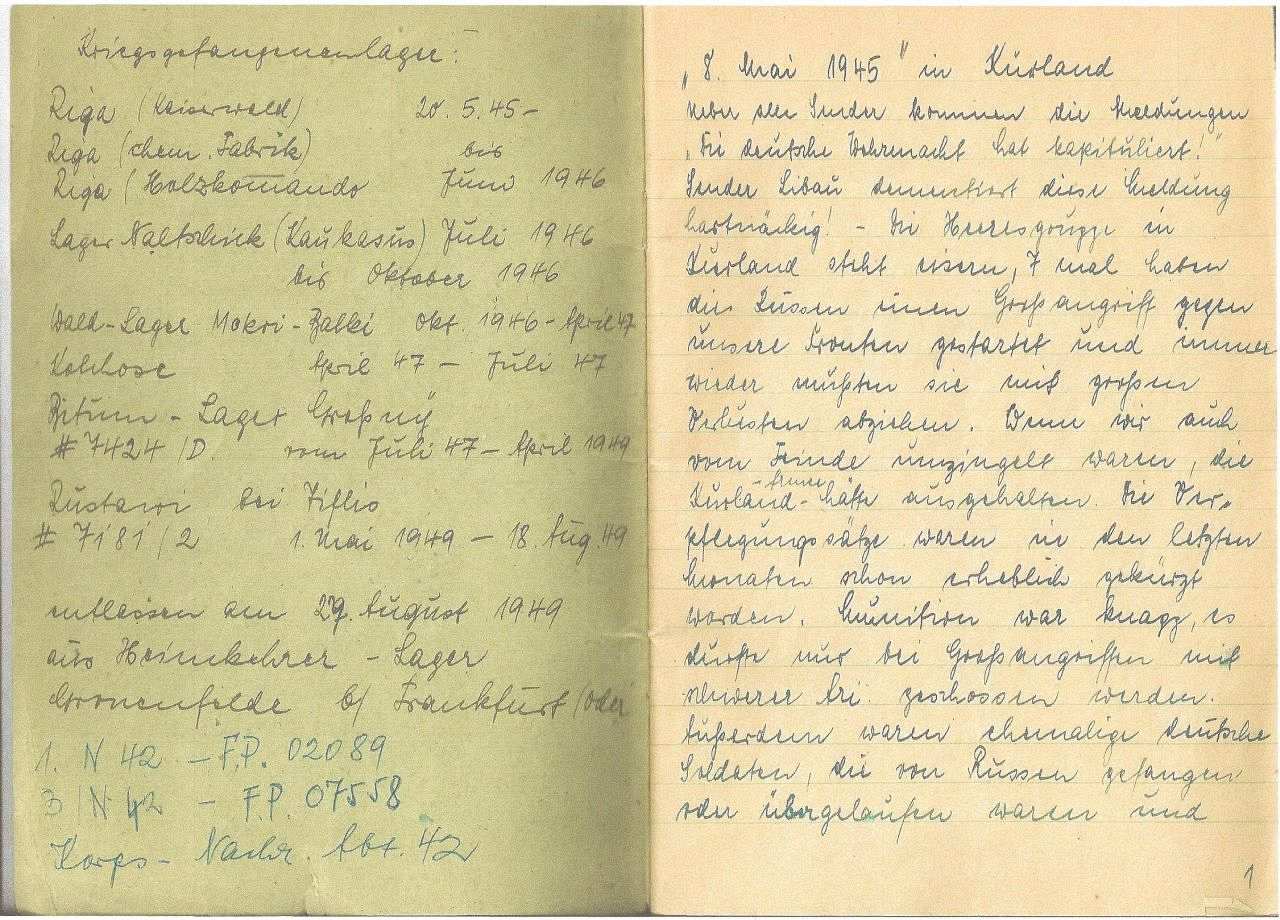 Kriegsgefangenenlager:
Riga (Kaiserwald) 20. 5. 45 –
Riga (chem. Fabrik) bis
Riga (Holzkomando Juni 1946
Lager Naltschick (Kaukasus) Juli 1946
bis Oktober 1946
Wald-Lager Mokri-Balki Okt. 1946 – April 47
Kolchose April 47 – Juli 47
Bitum-Lager Großny
# 7424/D. vom Juli 47 – April 1949
Rustawi bei Tiflis
# 7181/2 1. Mai 1949 – 18. Aug. 49
entlassen am 29. August 1949
aus Heimkehrer-Lager
Gronenfelde b/ Frankfurt/Oder
1. N 42 – F.P. 02089
3 N 42 – F.P. 07558
Korps-Nachr. Abt. 42
„8. Mai 1945" in Kurland
Ueber alle Sender kommen die Meldungen
„Die deutsche Wehrmacht hat kapituliert!"
Sender Libau dementiert diese Meldung
hartnäckig! – Die Heeresgruppe in
Kurland steht eisern, 7 mal haben
die Russen einen Großangriff gegen
unsere Fronten gestartet und immer
wieder mußten sie mit großen
Verlusten abziehen. Wenn wir auch
vom Feinde umzingelt waren, die
Kurland-front hätte ausgehalten. Die Ver-
pflegungssätze waren in den letzten
Monaten schon erheblich gekürzt
worden. Munition war knapp, es
durfte nur bei Großangriffen mit
schwerer Ari. geschossen werden.
Außerdem waren ehemalige deutsche
Soldaten, die von Russen gefangen
oder übergelaufen waren und
1